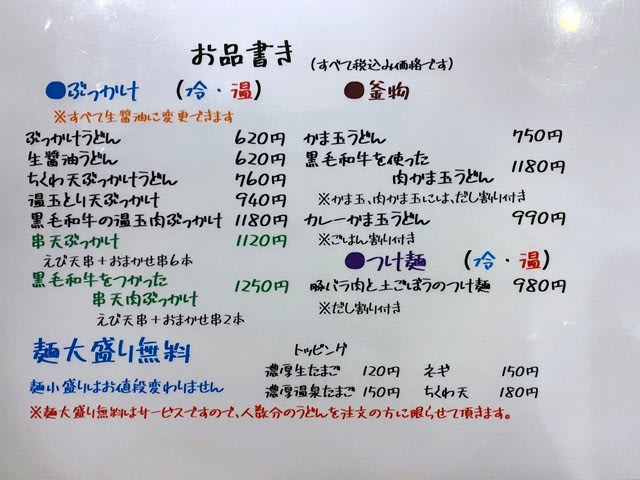 お品書き (すべて税込み価格です)
●ぶっかけ (冷・温)
※すべて生醤油に変更できます
ぶっかけうどん 620円
生醤油うどん 620円
ちくわ天ぶっかけうどん 760円
温玉とり天ぶっかけ 940円
黒毛和牛の温玉肉ぶっかけ 1180円
串天ぶっかけ 1120円
えび天串+おまかせ串6本
黒毛和牛をつかった
串天肉ぶっかけ 1250円
えび天串+おまかせ串2本
●釜物
かま玉うどん 750円
黒毛和牛を使った
肉かま玉うどん 1180円
※かま玉、肉かま玉には、だし割り付き
カレーかま玉うどん 990円
※ごはん割り付き
●つけ麺 (冷・温)
豚バラ肉と土ごぼうのつけ麺 980円
※だし割り付き
麺大盛り無料
麺小盛りはお値段変わりません
トッピング
濃厚生たまご 120円 ネギ 150円
濃厚温泉たまご 150円 ちくわ天 180円
※麺大盛り無料はサービスですので、人数分のうどんを注文の方に限らせて頂きます。